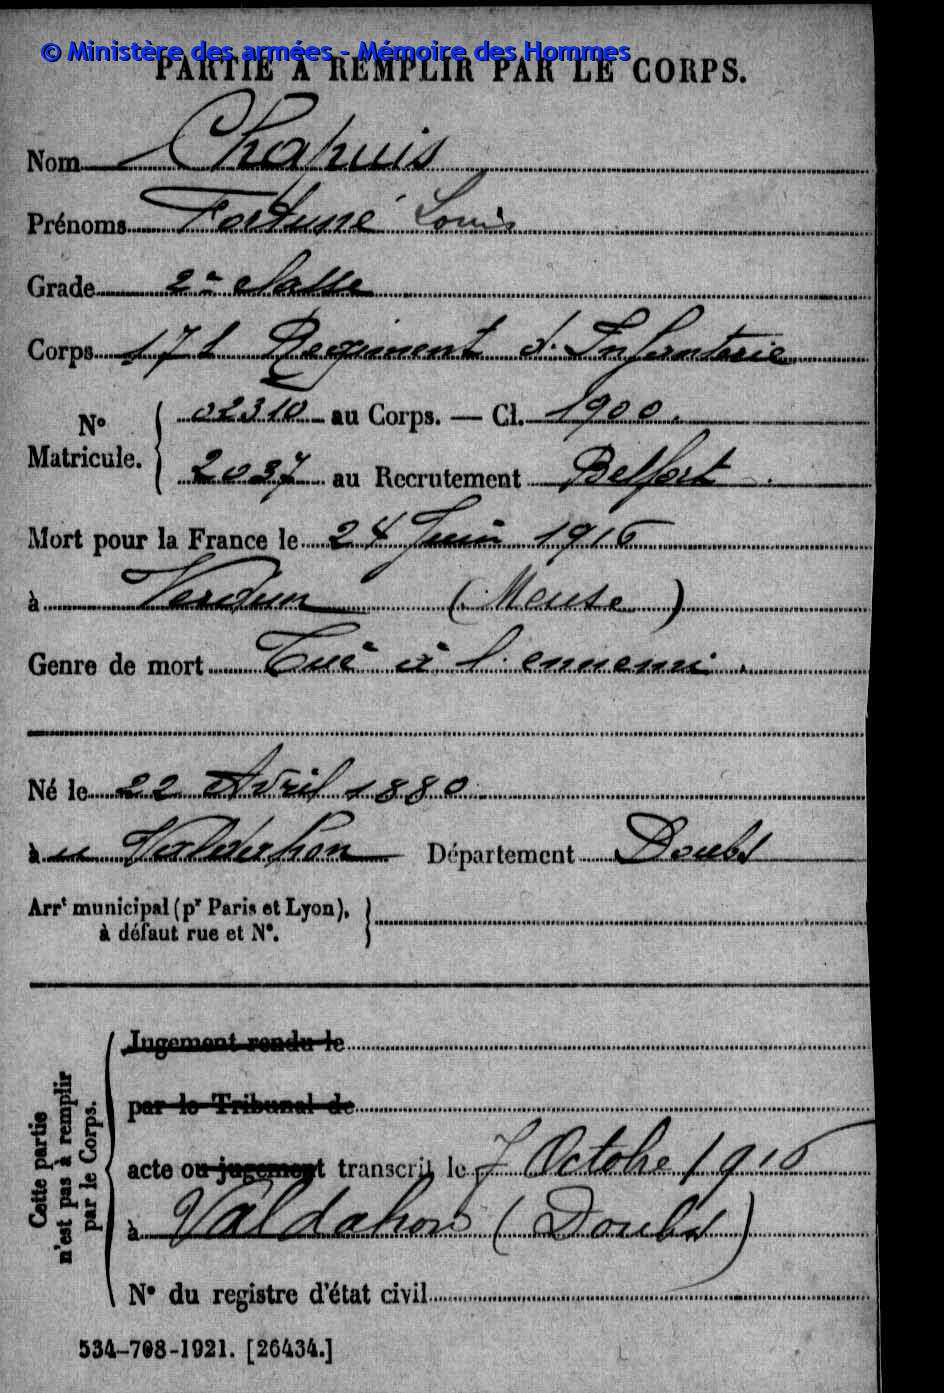 © Ministère des armées - Mémoire des Hommes
PARTIE À REMPLIR PAR LE CORPS.
Nom Chapuis
Prénoms Fortuné Louis
Grade 2e classe
Corps 171 Régiment d'Infanterie
No Matricule. { 02310 au Corps. — Cl. 1900.
2037 au Recrutement Belfort
Mort pour la France le 24 Juin 1916
à Verdun (Meuse)
Genre de mort Tué à l'ennemi.
Né le 22 Avril 1880
à Valdahon Département Doubs
Arrt municipal (pr Paris et Lyon), }
à défaut rue et No.
Cette partie
n'est pas à remplir
par le Corps.
Jugement rendu le
par le Tribunal de
acte ou jugement transcrit le 7 Octobre 1916
à Valdahon (Doubs)
No du registre d'état civil
534-708-1921. [26434.]